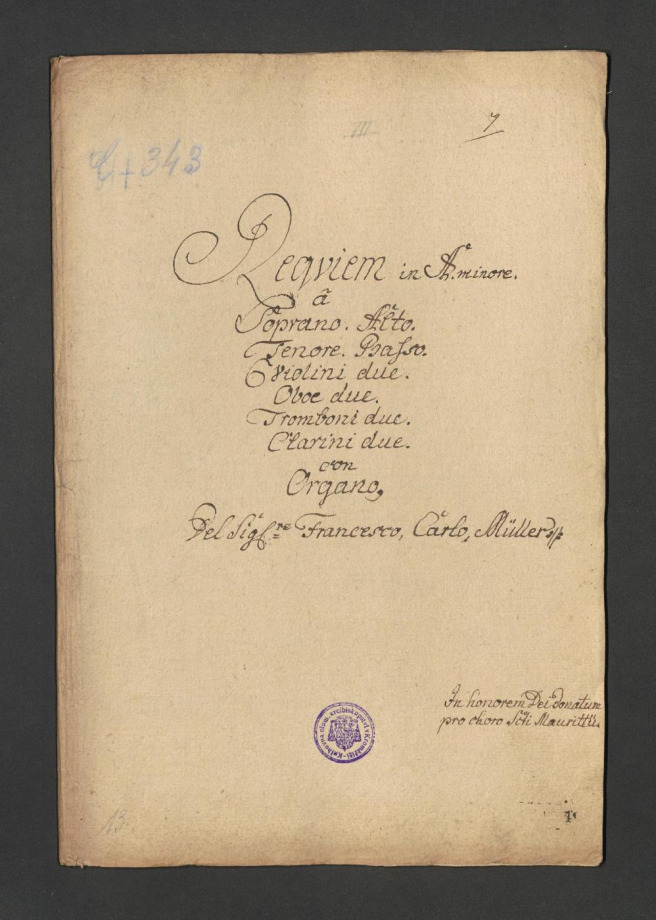 III
7
+ 343
Requiem in A. minore.
â
Soprano. Alto.
Tenore. Basso.
Violini due.
Oboe due.
Tromboni due.
Clarini due.
con
Organo,
Del Sig:re Francesco, Carlo, Müller
In honorem Dei donatum
pro choro Scti Maurittii.
13